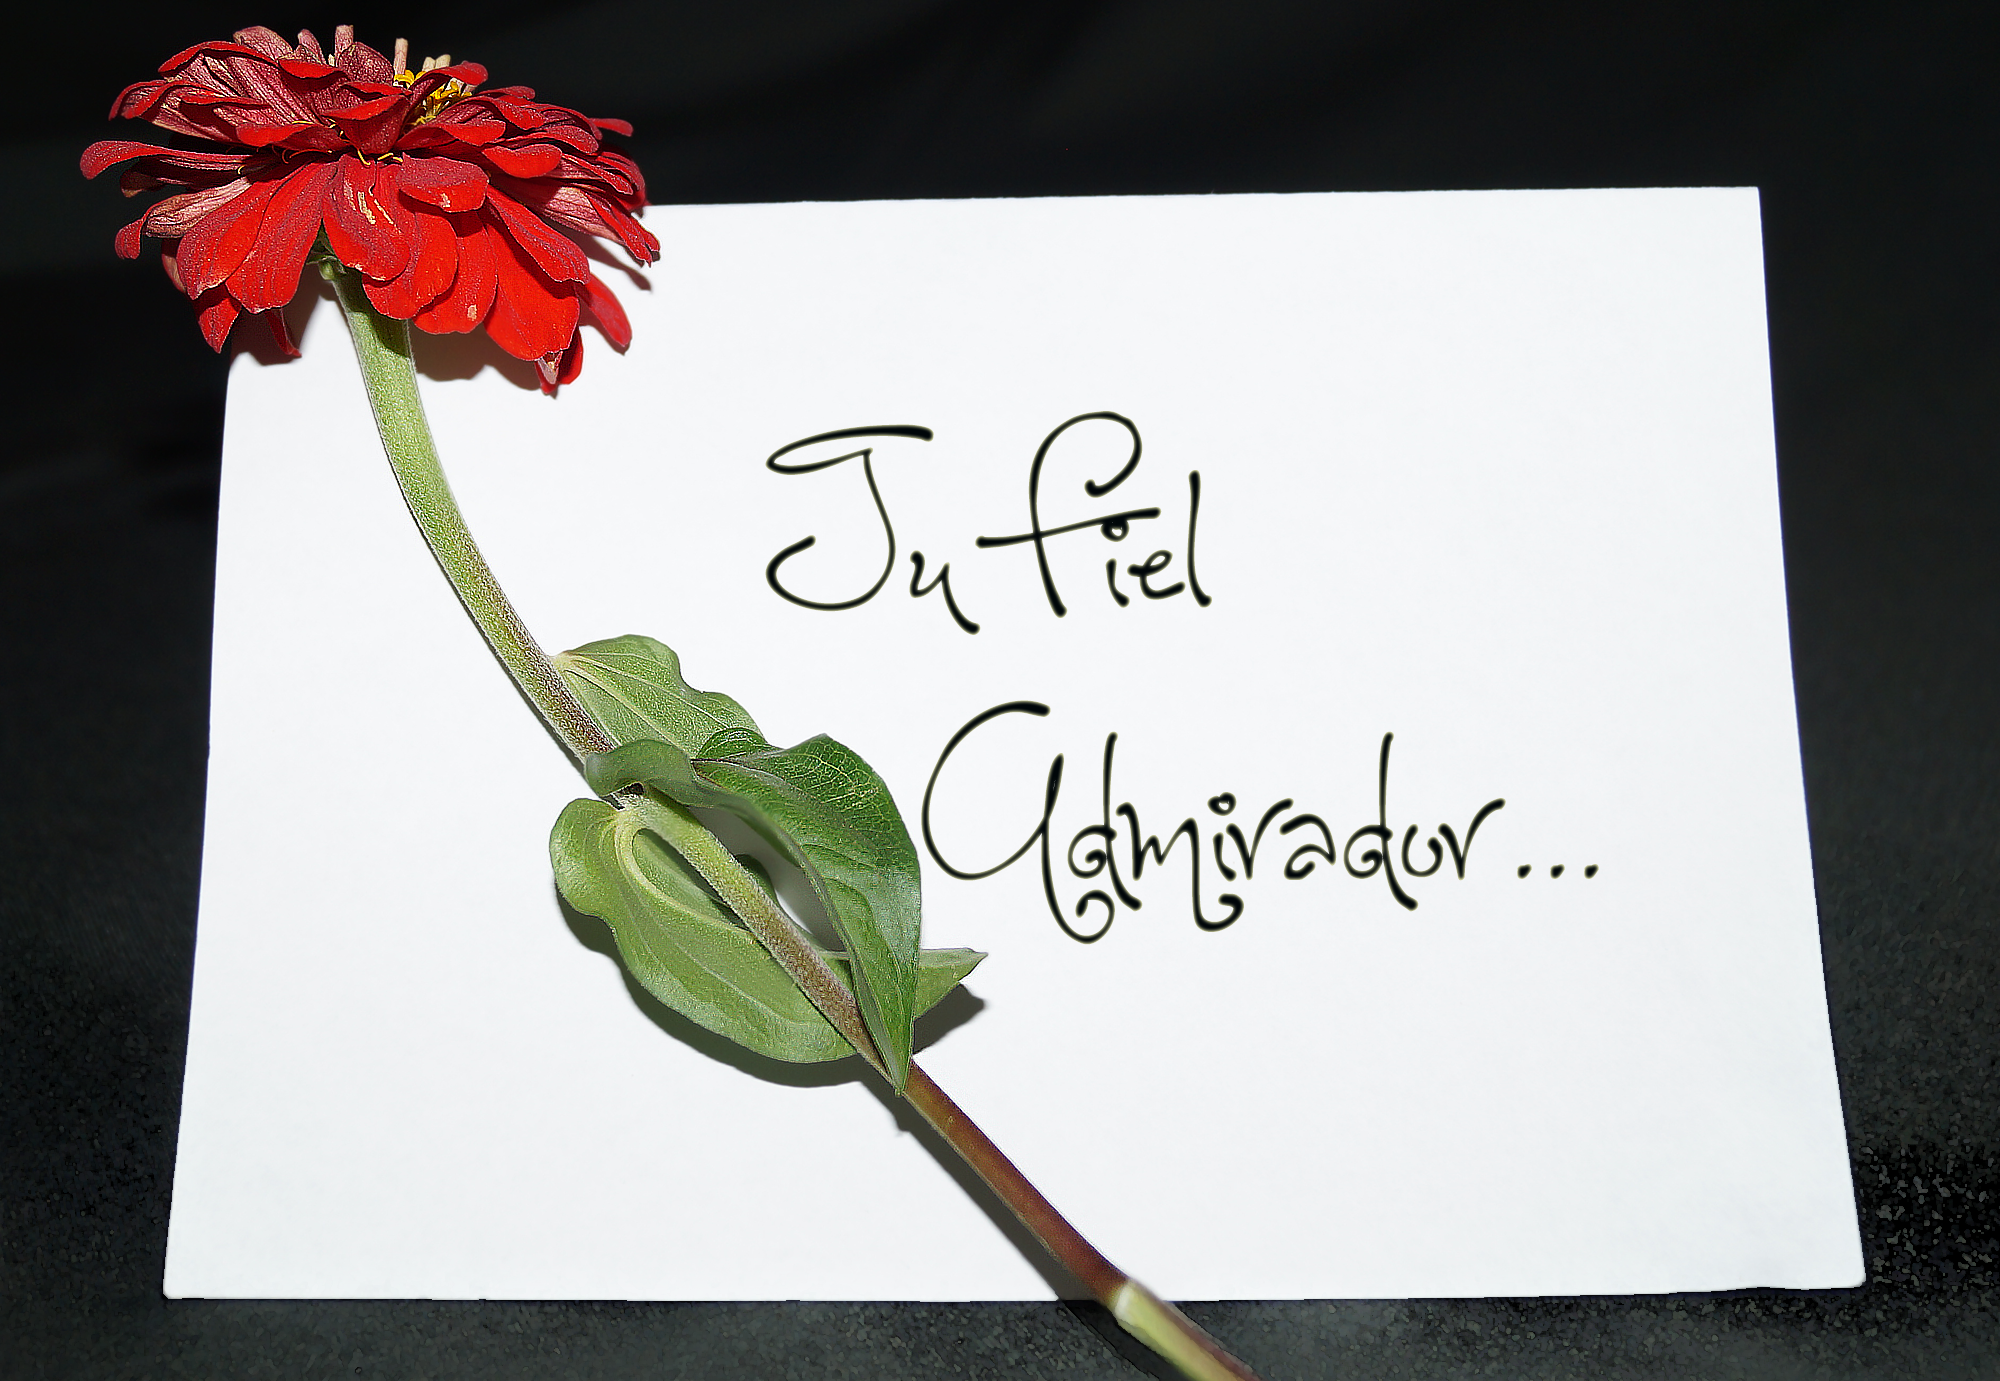 Tu fiel
Admirador...